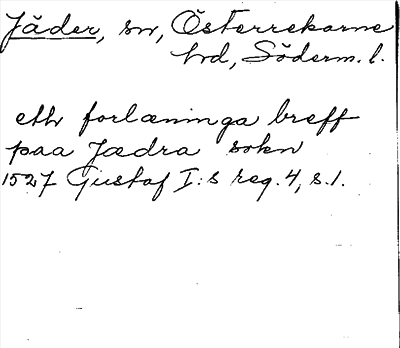 Jäder, sn, Österrekarne
hd, Söderm. l.
ett forlæninga breff
paa Jædra sokn
1527 Gustaf I:s reg. 4, s. 1.